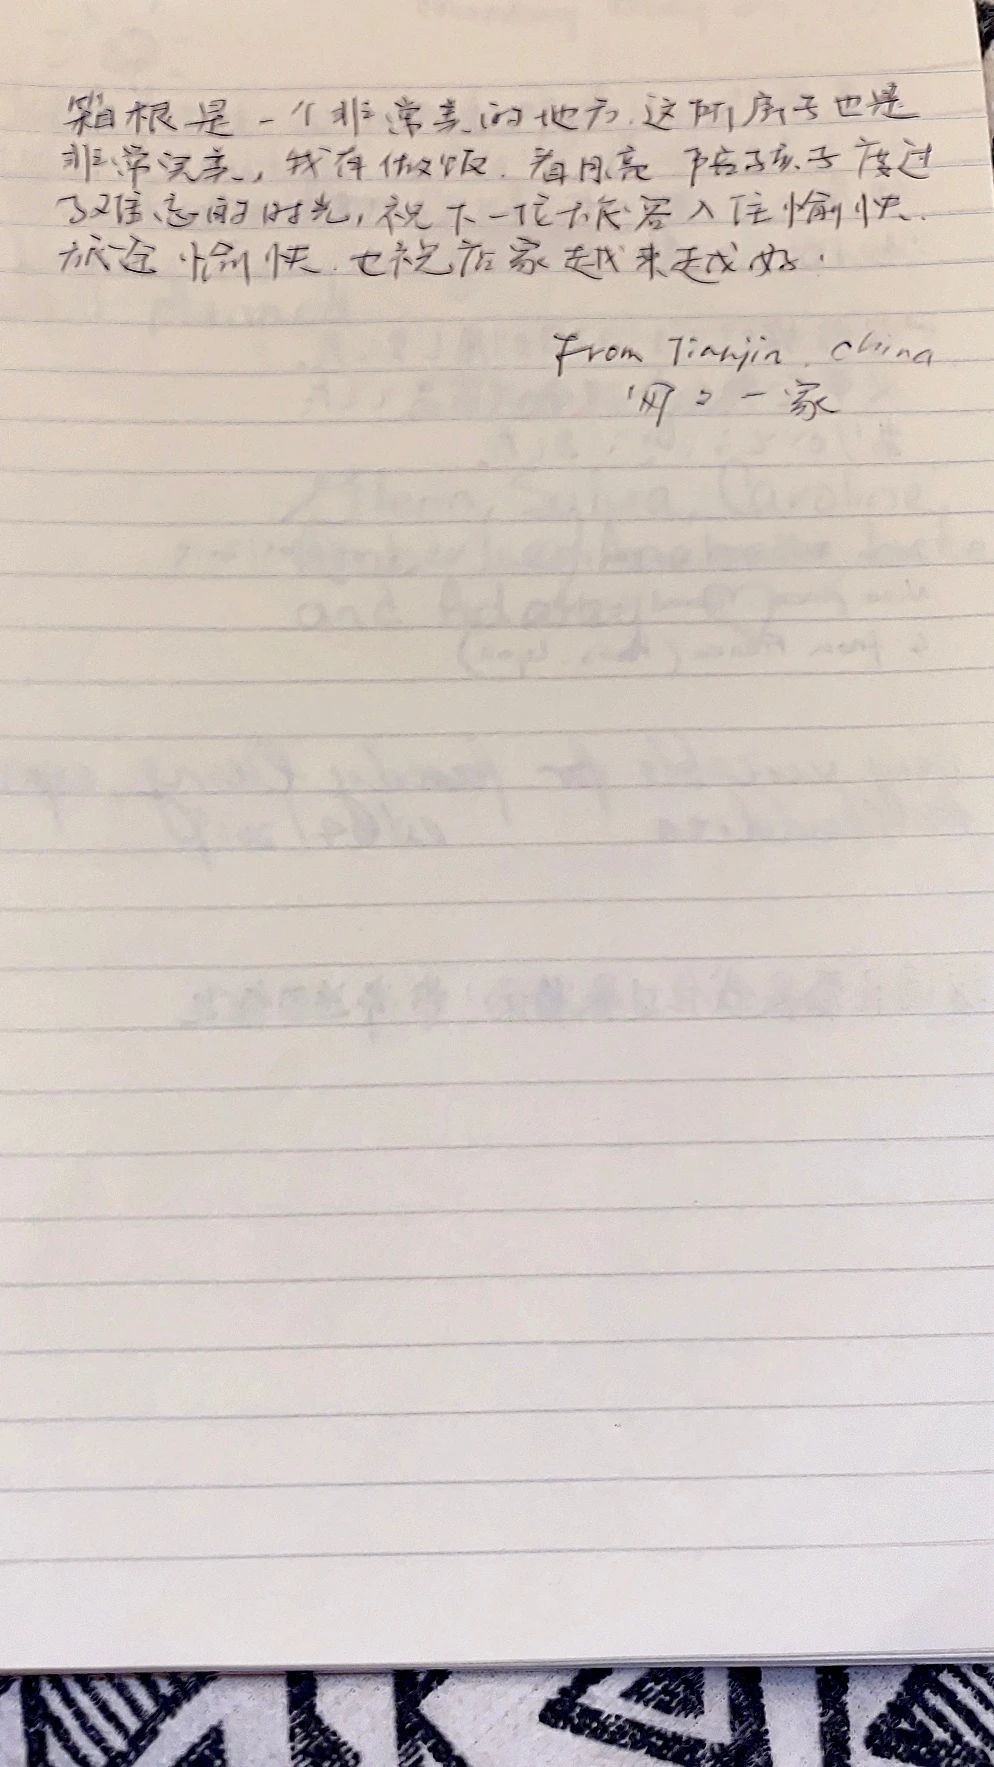 箱根是一个非常美的地方.这所房子也是
非常完美,我在做饭.看月亮 陪孩子度过
了难忘的时光,祝下一位旅客入住愉快.
旅途愉快.也祝店家越来越好.
From Tianjin. China
一家